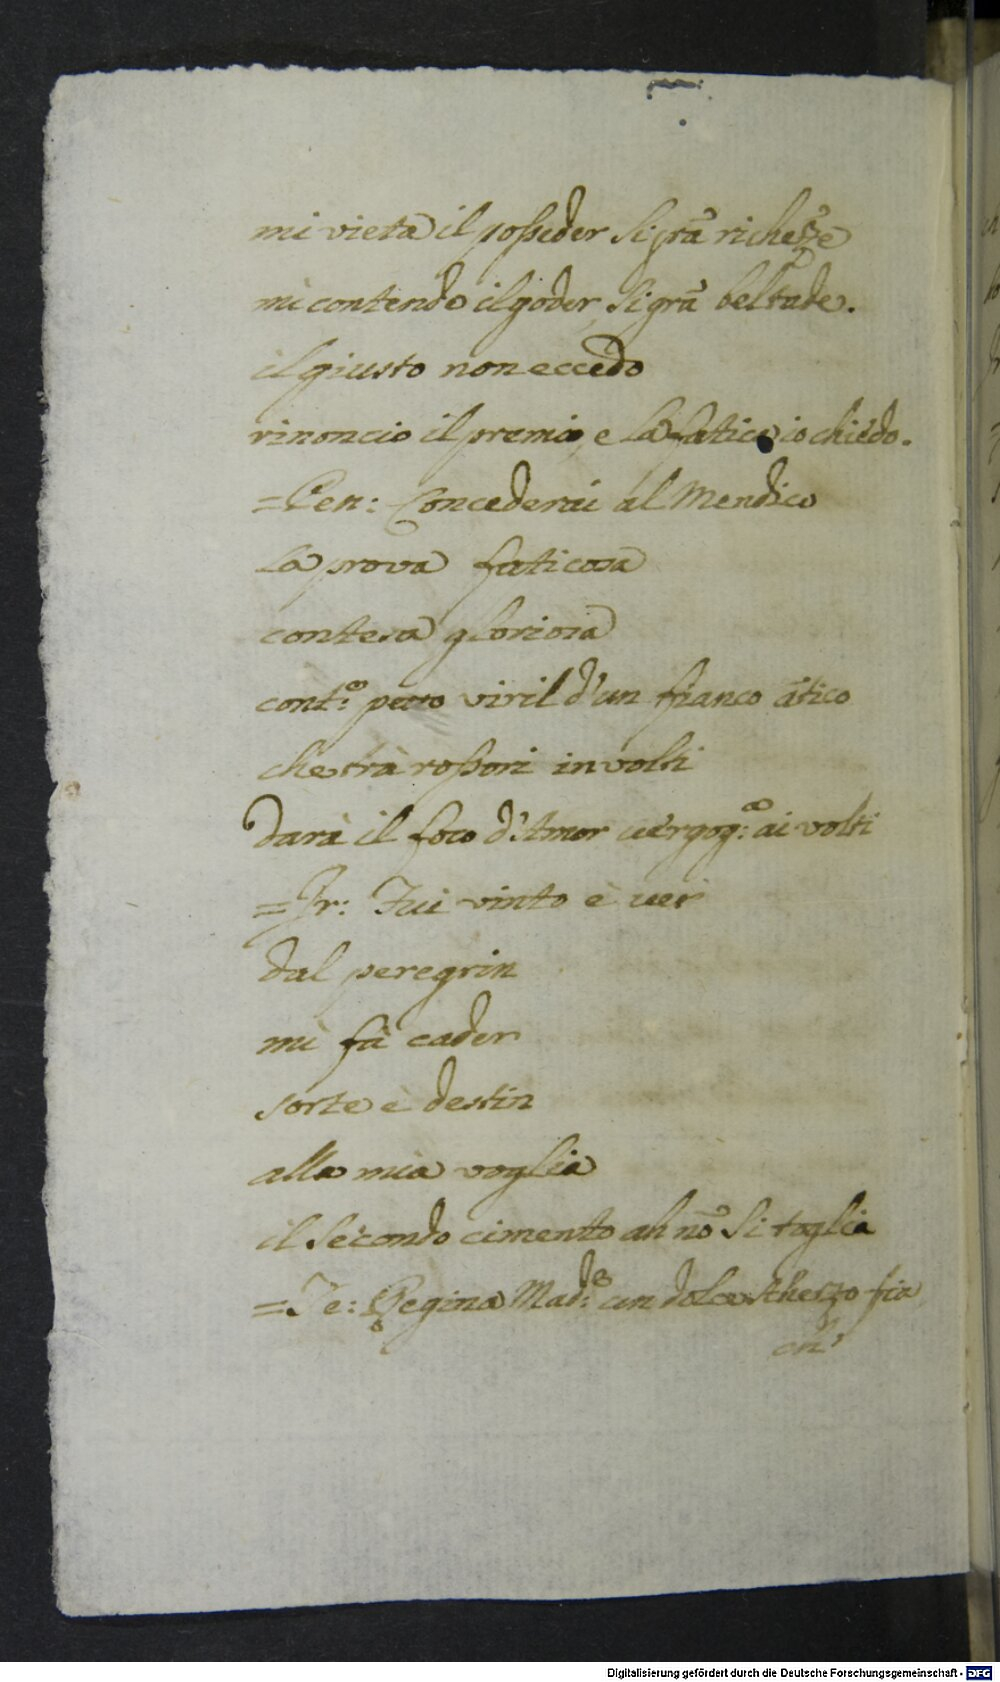 mi vieta il posseder si grã richeze
mi contendo il goder, si grã beltade.
il giusto non eccedo
rinoncio il premio, e la fatica io chiedo.
=Pen: Concederai al Mendico
la prova faticosa
contesa gloriosa
cont:o petto viril d'un fianco ãtico
che trà rossori involti
Darà il foco d'Amor uergog:e ai volti
=Ir: Fui vinto è uer
dal peregrin
mi fà cader
sorte è destin
alla mia voglia
il secondo cimento ah nõ si toglia
=Te: Regina Mad:e un dolce scherzo fia
ch'
Digitalisierung gefördert durch die Deutsche Forschungsgemeinschaft - DFG